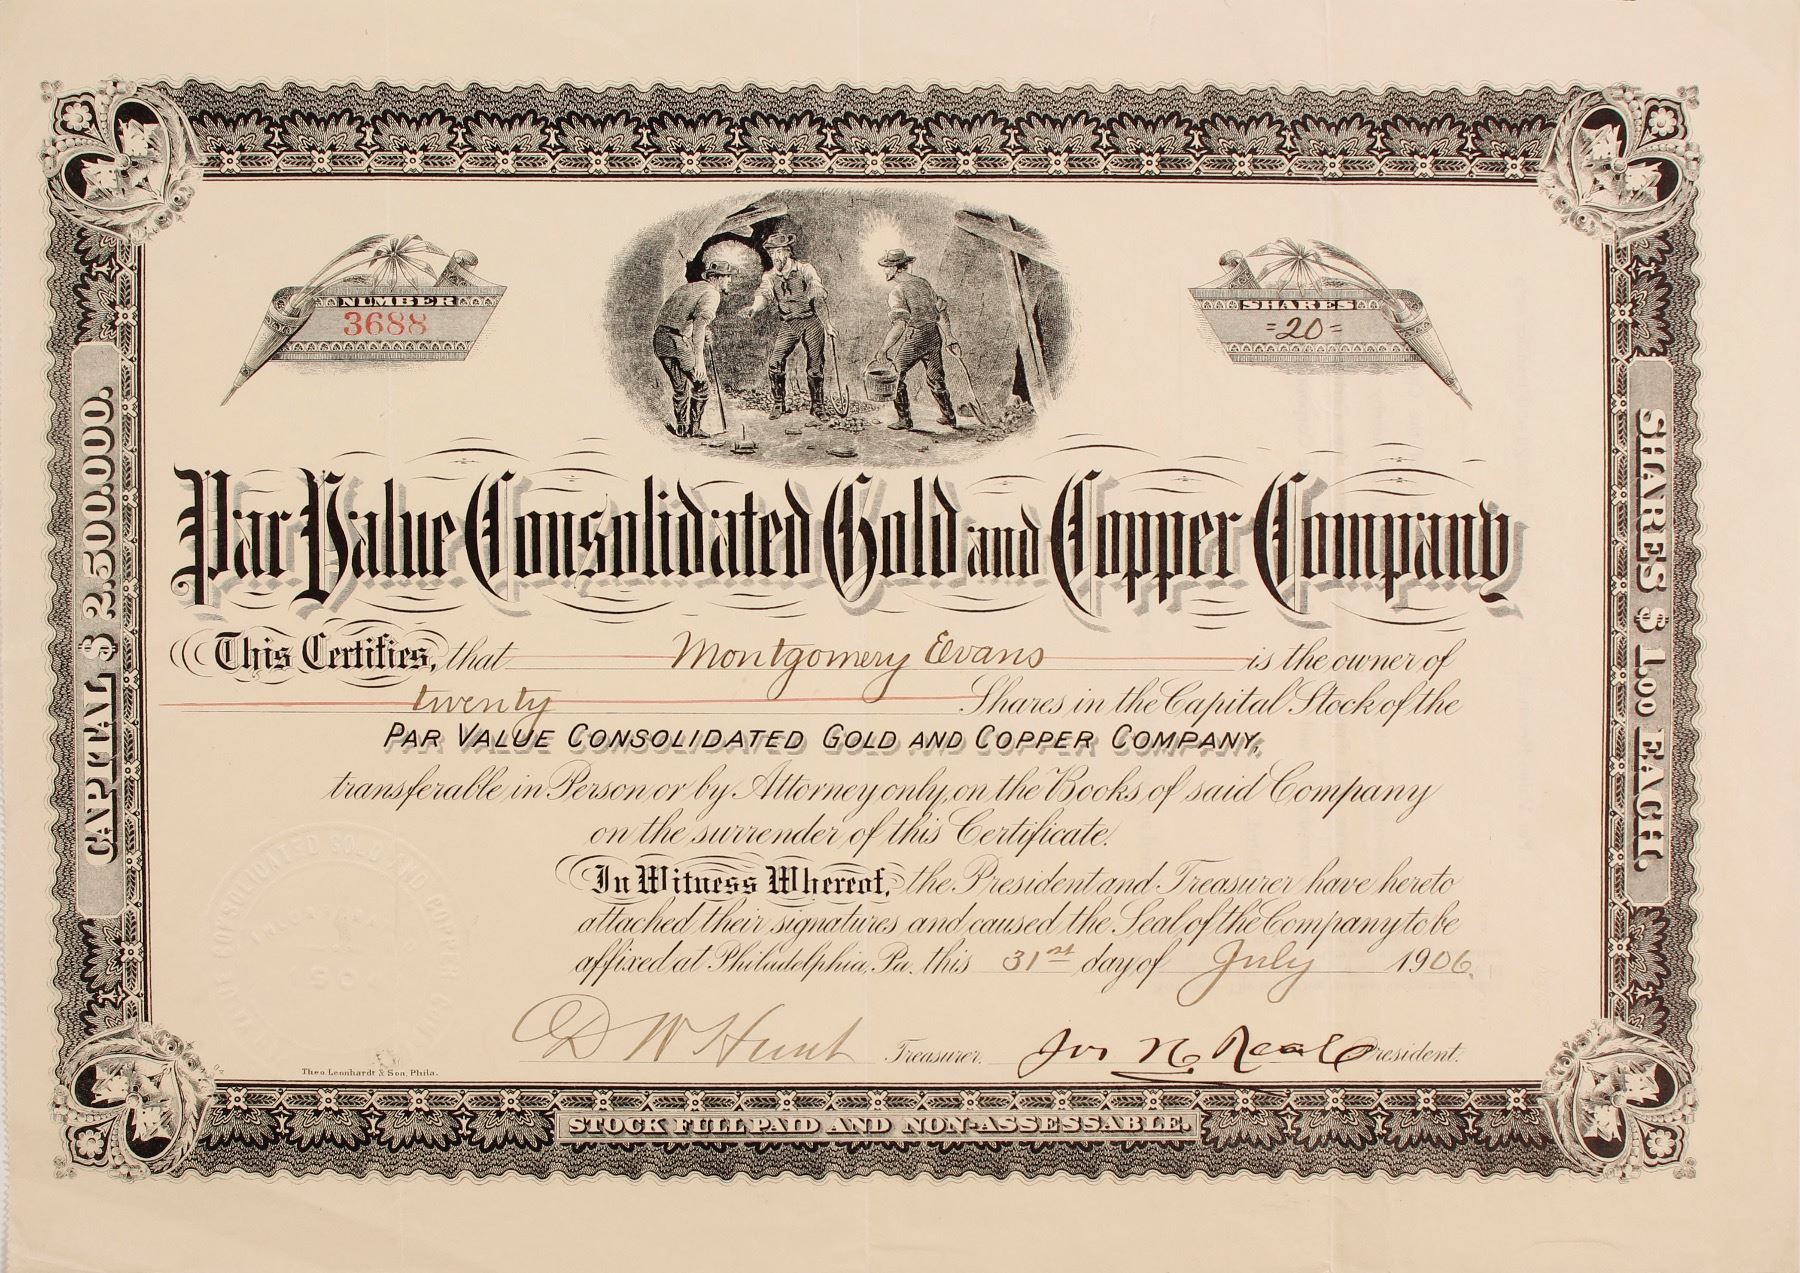 NUMBER
3688
SHARES
=20=
CAPITAL $ 2,500,000.
SHARES $ 1.00 EACH.
Par Value Consolidated Gold and Copper Company
This Certifies, that Montgomery Evans is the owner of
twenty Shares in the Capital Stock of the
PAR VALUE CONSOLIDATED GOLD AND COPPER COMPANY,
transferable in Person or by Attorney only, on the Books of said Company
on the surrender of this Certificate.
In Witness Whereof, the President and Treasurer have hereto
attached their signatures and caused the Seal of the Company to be
affixed at Philadelphia, Pa. this 31st day of July 1906.
D W Hunt Treasurer. President.
CONSOLIDATED GOLD AND COPPER
Theo. Leonhardt & Son, Phila.
STOCK FULL PAID AND NON-ASSESSABLE.